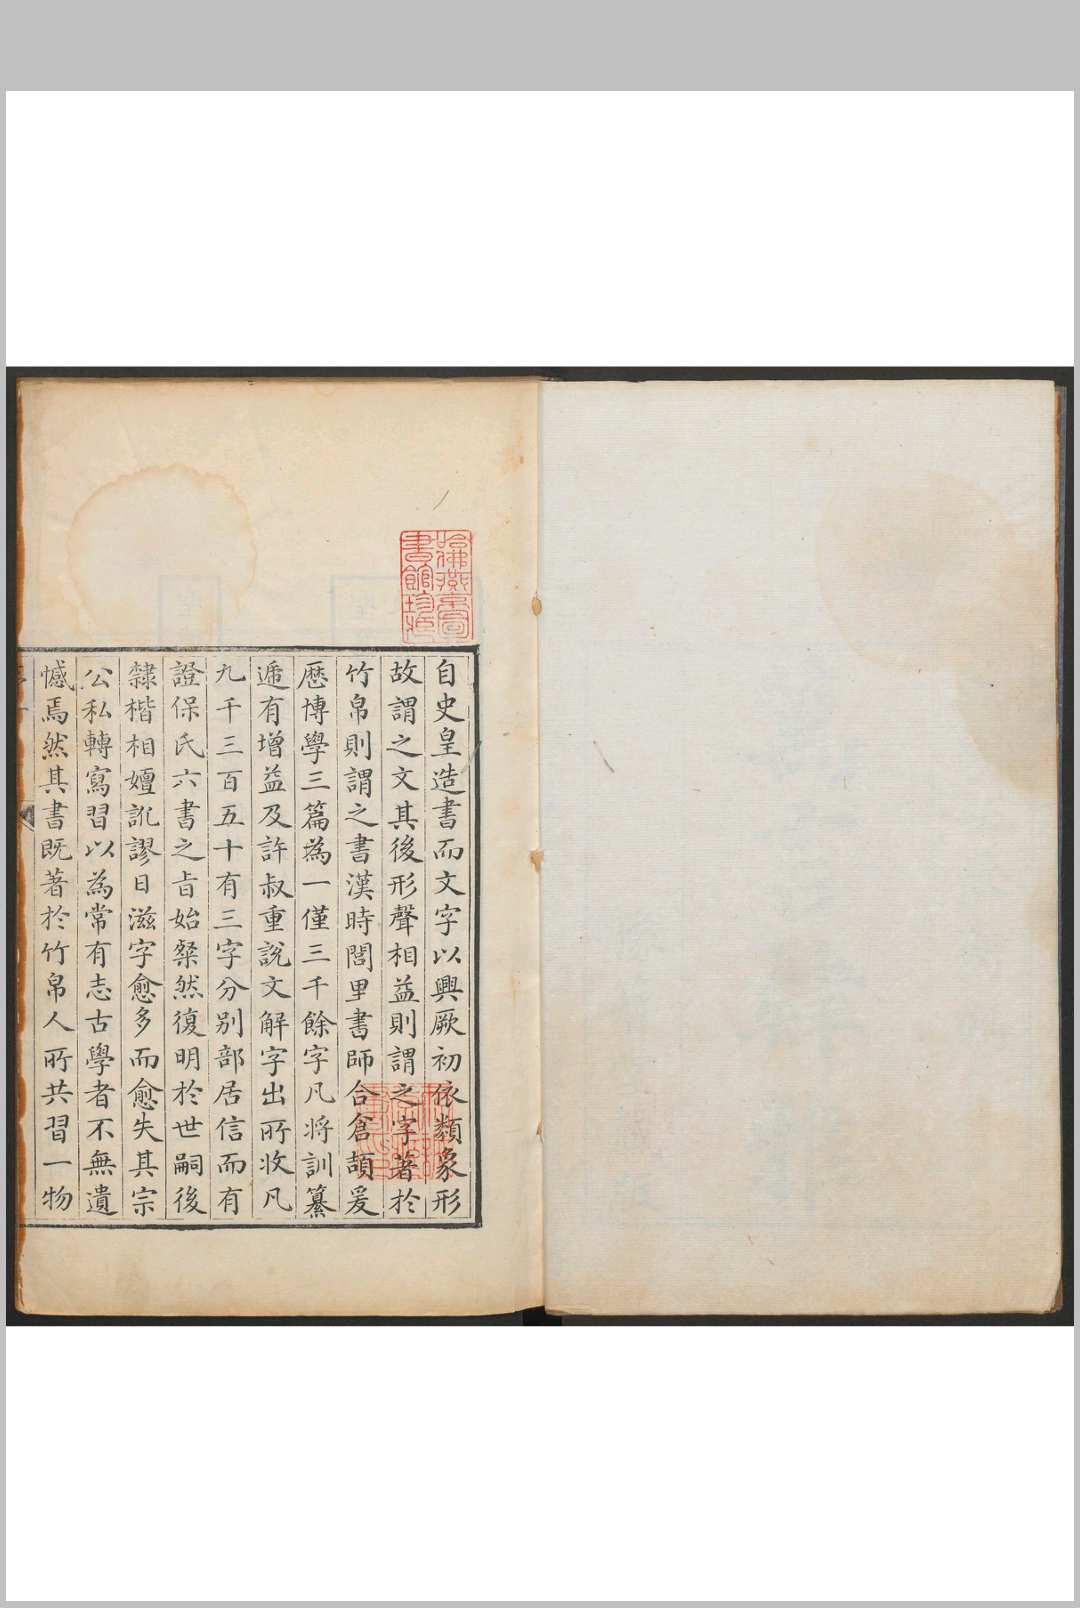 自史皇造書而文字以興厥初依類象形
故謂之文其後形聲相益則謂之字著於
竹帛則謂之書漢時閭里書師合倉頡爰
歷博學三篇為一僅三千餘字凡將訓纂
遞有增益及許叔重說文解字出所收凡
九千三百五十有三字分別部居信而有
證保氏六書之旨始粲然復明於世嗣後
隸楷相嬗訛謬日滋字愈多而愈失其宗
公私轉寫習以為常有志古學者不無遺
憾焉然其書既著於竹帛人所共習一物
哈佛燕京圖書館珍藏